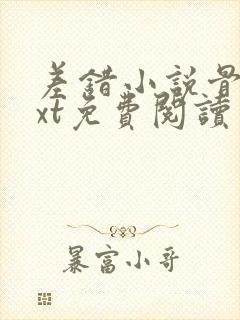 差錯小說骨
xt免費閱讀
暴富小哥